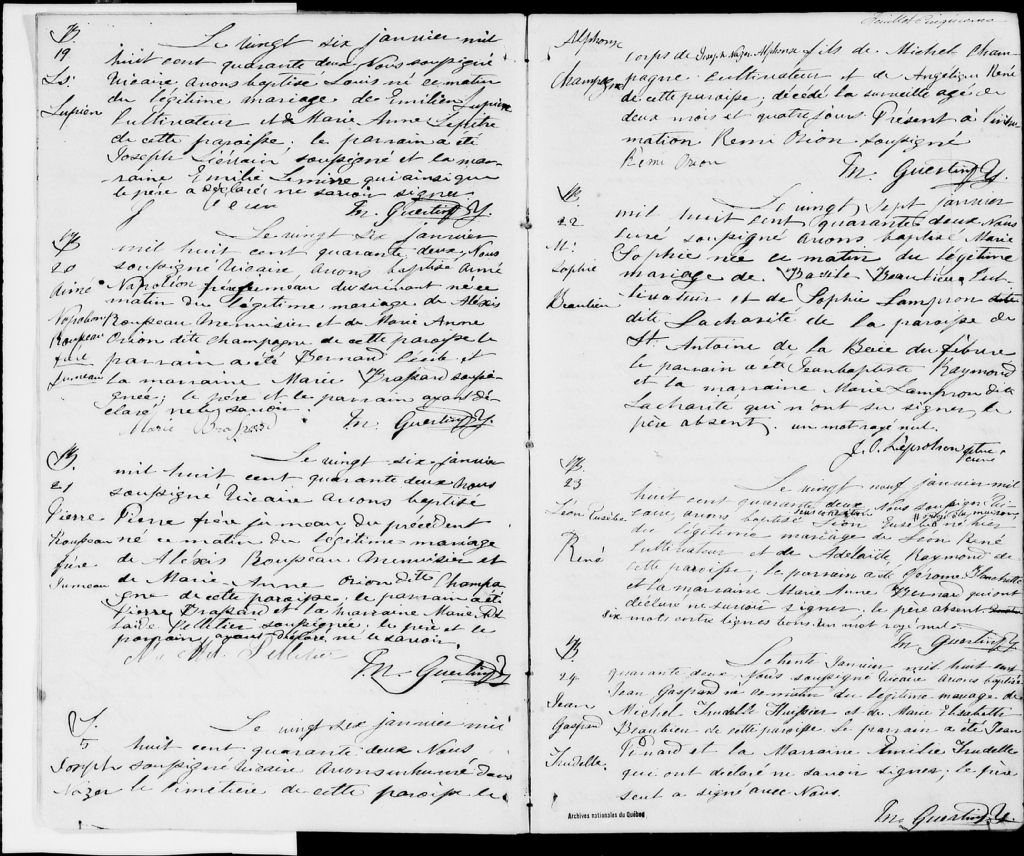 B
19
Ls
Lupien
Le vingt six janvier mil
huit cent quarante deux Nous soussigné
Vicaire avons baptisé Louis né ce matin
du légitime mariage de Emilien Lupien
Cultivateur et de Marie Anne
de cette paroisse; le parrain a été
Joseph soussigné et la mar-
raine Emilie qui ainsi que
le père a déclaré ne savoir signer
M. Guertin Ptr.
B
20
Aimé
Napoléon
Rousseau
frère
Jumeau
Le vingt six janvier
mil huit cent quarante deux, Nous
soussigné Vicaire, avons baptisé Aimé
Napoléon frère jumeau du suivant né ce
matin du légitime mariage de Alexis
Rousseau Menuisier et de Marie Anne
Orion dite Champagne de cette paroisse le
parrain a été Bernard et
la marraine Marie Brassard soussi-
gnée; le père et le parrain ayant dé-
claré ne le savoir
Marie Brassard
M. Guertin Ptr.
B
21
Pierre
Rousseau
frère
Jumeau
Le vingt six janvier
mil huit cent quarante deux nous
soussigné Vicaire avons baptisé
Pierre frère jumeau du précédent
né ce matin du légitime mariage
de Aléxis Rousseau Menuisier et
de Marie Anne Orion dite Champa
gne de cette paroisse; le parrain a été
Pierre Brassard et la marraine Marie Adé
laide Pelletier soussignée; le père et le
parrain ayant déclaré ne le savoir
Pelletier
M. Guertin Ptr.
S.
5
Joseph
Nazer
Le vingt six janvier mil
huit cent quarante deux Nous
soussigné Vicaire avons inhumé dans
le cimetière de cette paroisse le
Feuillet
Alphonse
Champagne
corps de Joseph Nazer Alphonse fils de Michel Cham
pagne Cultivateur et de Angélique René
de cette paroisse, décédé la surveille agé de
deux mois et quatre jours Présent à l'inhu
mation Remi Orion soussigné
Rémi Orion
M. Guertin Ptr.
B
22
M.
Sophie
Beaulieu
Le vingt Sept janvier
mil huit cent quarante deux Nous
curé soussigné avons baptisé Marie
Sophie née ce matin du légitime
mariage de Basile Beaulieu Cul-
tivateur et de Sophie Lampron dite
dite Lacharité de la paroisse de
St. Antoine de la Baie du febvre
le parrain a été Jean baptiste Raymond
et la marraine Marie Lampron dite
Lacharité qui n'ont su signer, le
père absent. un mot rayé nul.
J. O. Leprohon ptre
curé
B
23
Léon Eusèbe
René
Le vingt neuf janvier mil
huit cent quarante deux Nous soussigné Vi
caire avons baptisé Léon Eusèbe né hier
du légitime mariage de Léon René
Cultivateur et de Adelaide Raymond de
cette paroisse, le parrain a été Jérôme
et la marraine Marie Anne Bernard qui ont
déclaré ne savoir signer; le père absent
six mots entre lignes bons. un mot rayé nul.
M. Guertin Ptr.
B
24
Jean
Gaspard
Trudelle
Le trente Janvier mil huit cent
quarante deux, Nous soussigné Vicaire avons baptisé
Jean Gaspard né ce matin du légitime mariage de
Michel Trudelle Huissier et de Marie Elisabeth
Beaubien de cette paroisse. Le parrain a été Jean
Pinard et la Marraine Emilie Trudelle
qui ont déclaré ne savoir signer. le père
seul a signé avec Nous.
M. Guertin Ptr.
Archives nationales du Québec